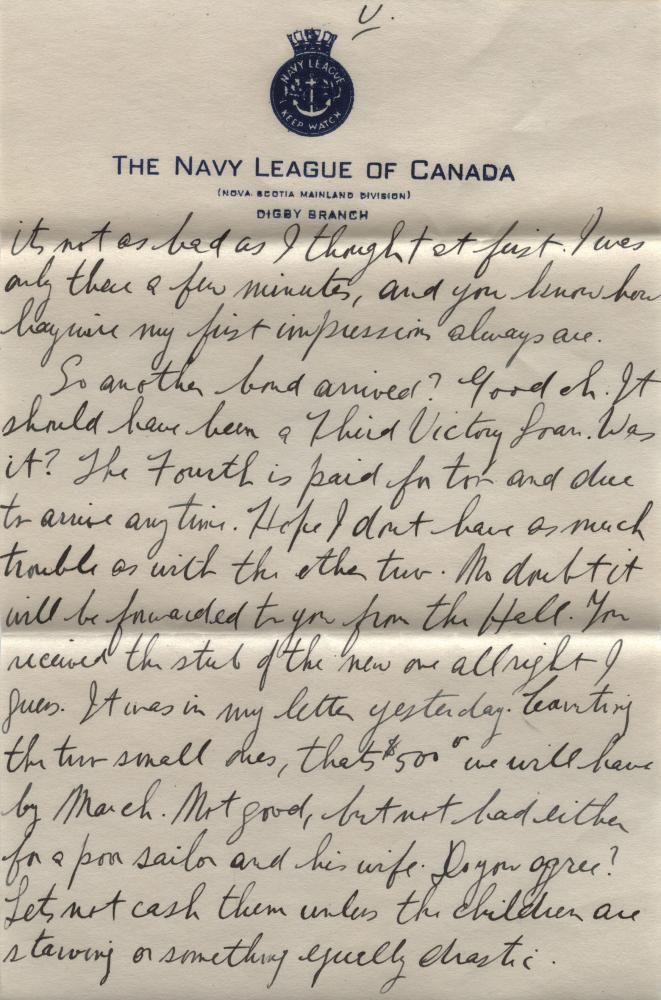 V.
NAVY LEAGUE
KEEP WATCH
THE NAVY LEAGUE OF CANADA
(NOVA SCOTIA MAINLAND DIVISION)
DIGBY BRANCH
its not as bad as I thought at first. I was
only there a few minutes, and you know how
haywire my first impressions always are.
So another bond arrived? Good eh. It
should have been a Third Victory Loan. Was
it? The Fourth is paid for too and due
to arrive anytime. Hope I dont have as much
trouble as with the other two. No doubt it
will be forwarded to you from the Hall. You
received the stub of the new one allright I
guess. It was in my letter yesterday. Counting
the two small ones, thats $500 we will have
by March. Not good, but not bad either
for a poor sailor and his wife. Do you agree?
Lets not cash them unless the children are
starving or something equally drastic.